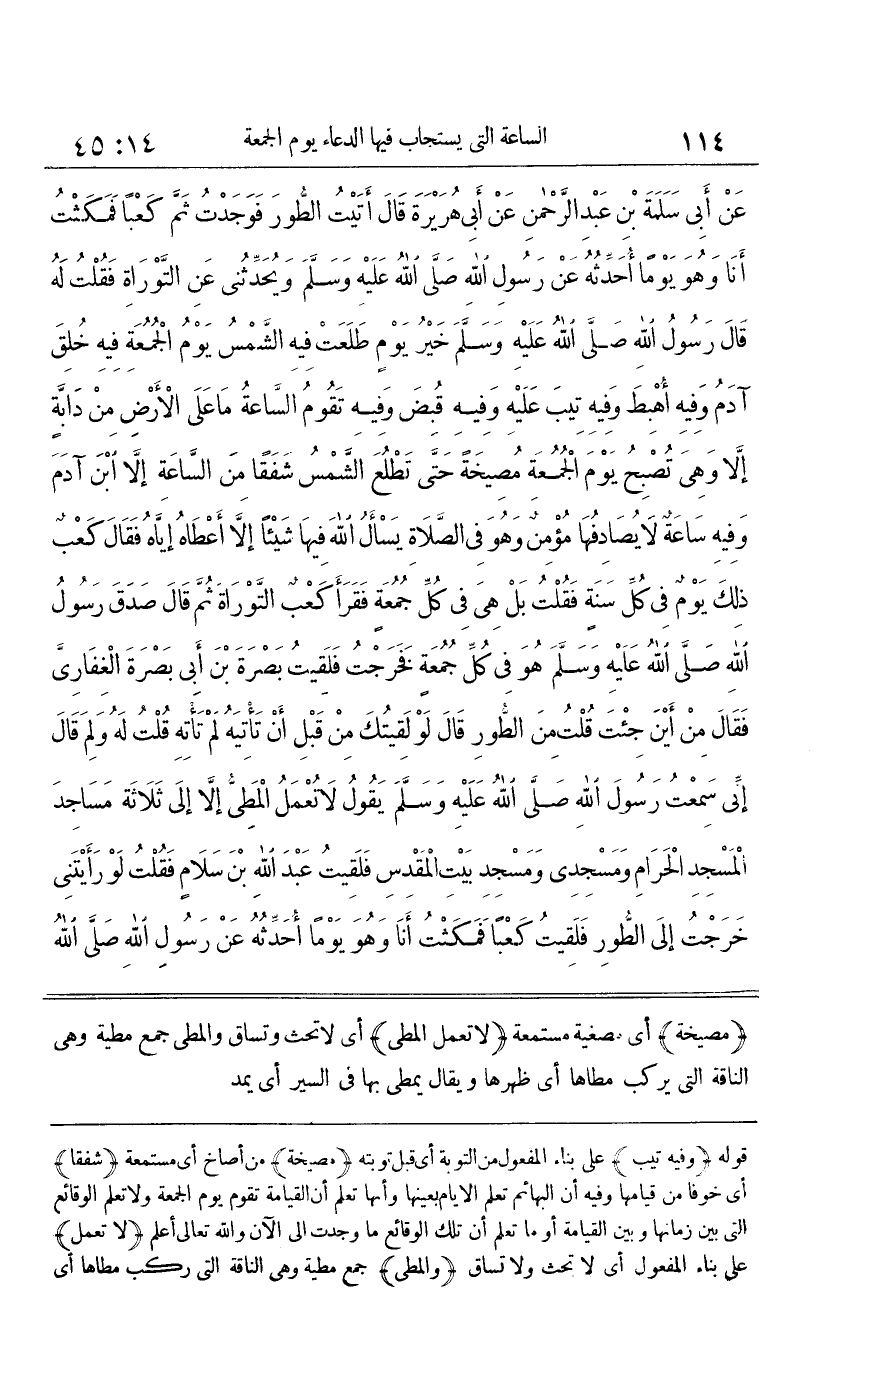 ١١٤ الساعة التى يستجاب فيها الدعاء يوم الجمعة ١٤: ٤٥
عَنْ أَبِى سَلَمَةَ بْنِ عَبْدِ الرَّحْمٰنِ عَنْ أَبِى هُرَيْرَةَ قَالَ أَتَيْتُ الطُّورَ فَوَجَدْتُ ثَمَّ كَعْبًا فَمَكَثْتُ
أَنَا وَهُوَ يَوْمًا أُحَدِّثُهُ عَنْ رَسُولِ اللّٰهِ صَلَّى اللّٰهُ عَلَيْهِ وَسَلَّمَ وَيُحَدِّثُنِى عَنِ التَّوْرَاةِ فَقُلْتُ لَهُ
قَالَ رَسُولُ اللّٰهِ صَلَّى اللّٰهُ عَلَيْهِ وَسَلَّمَ خَيْرُ يَوْمٍ طَلَعَتْ فِيهِ الشَّمْسُ يَوْمُ الْجُمُعَةِ فِيهِ خُلِقَ
آدَمُ وَفِيهِ أُهْبِطَ وَفِيهِ تِيبَ عَلَيْهِ وَفِيهِ قُبِضَ وَفِيهِ تَقُومُ السَّاعَةُ مَا عَلَى الْأَرْضِ مِنْ دَابَّةٍ
إِلَّا وَهِىَ تُصْبِحُ يَوْمَ الْجُمُعَةِ مُصِيخَةً حَتَّى تَطْلُعَ الشَّمْسُ شَفَقًا مِنَ السَّاعَةِ إِلَّا ابْنَ آدَمَ
وَفِيهِ سَاعَةٌ لَا يُصَادِفُهَا مُؤْمِنٌ وَهُوَ فِى الصَّلَاةِ يَسْأَلُ اللّٰهَ فِيهَا شَيْئًا إِلَّا أَعْطَاهُ إِيَّاهُ فَقَالَ كَعْبٌ
ذٰلِكَ يَوْمٌ فِى كُلِّ سَنَةٍ فَقُلْتُ بَلْ هِىَ فِى كُلِّ جُمُعَةٍ فَقَرَأَ كَعْبٌ التَّوْرَاةَ ثُمَّ قَالَ صَدَقَ رَسُولُ
اللّٰهِ صَلَّى اللّٰهُ عَلَيْهِ وَسَلَّمَ هُوَ فِى كُلِّ جُمُعَةٍ فَخَرَجْتُ فَلَقِيتُ بَصْرَةَ بْنَ أَبِى بَصْرَةَ الْغِفَارِىَّ
فَقَالَ مِنْ أَيْنَ جِئْتَ قُلْتُ مِنَ الطُّورِ قَالَ لَوْ لَقِيتُكَ مِنْ قَبْلِ أَنْ تَأْتِيَهُ لَمْ تَأْتِهِ قُلْتُ لَهُ وَلِمَ قَالَ
إِنِّى سَمِعْتُ رَسُولَ اللّٰهِ صَلَّى اللّٰهُ عَلَيْهِ وَسَلَّمَ يَقُولُ لَا تُعْمَلُ الْمَطِىُّ إِلَّا إِلَى ثَلَاثَةِ مَسَاجِدَ
الْمَسْجِدِ الْحَرَامِ وَمَسْجِدِى وَمَسْجِدِ بَيْتِ الْمَقْدِسِ فَلَقِيتُ عَبْدَ اللّٰهِ بْنَ سَلَامٍ فَقُلْتُ لَوْ رَأَيْتَنِى
خَرَجْتُ إِلَى الطُّورِ فَلَقِيتُ كَعْبًا فَمَكَثْتُ أَنَا وَهُوَ يَوْمًا أُحَدِّثُهُ عَنْ رَسُولِ اللّٰهِ صَلَّى اللّٰهُ
﴿مصيخة﴾ أى مصغية مستمعة ﴿لا تعمل المطى﴾ أى لا تحث وتساق والمطى جمع مطية وهى
الناقة التى يركب مطاها أى ظهرها ويقال يمطى بها فى السير أى يمد
قوله ﴿وفيه تيب﴾ على بناء المفعول من التوبة أى قبل توبته ﴿مصيخة﴾ من أصاخ أى مستمعة ﴿شفقا﴾
أى خوفا من قيامها وفيه أن البهائم تعلم الايام بعينها وأنها تعلم أن القيامة تقوم يوم الجمعة ولا تعلم الوقائع
التى بين زمانها وبين القيامة أو ما تعلم أن تلك الوقائع ما وجدت الى الآن والله تعالى أعلم ﴿لا تعمل﴾
على بناء المفعول أى لا تحث ولا تساق ﴿والمطى﴾ جمع مطية وهى الناقة التى ركب مطاها أى